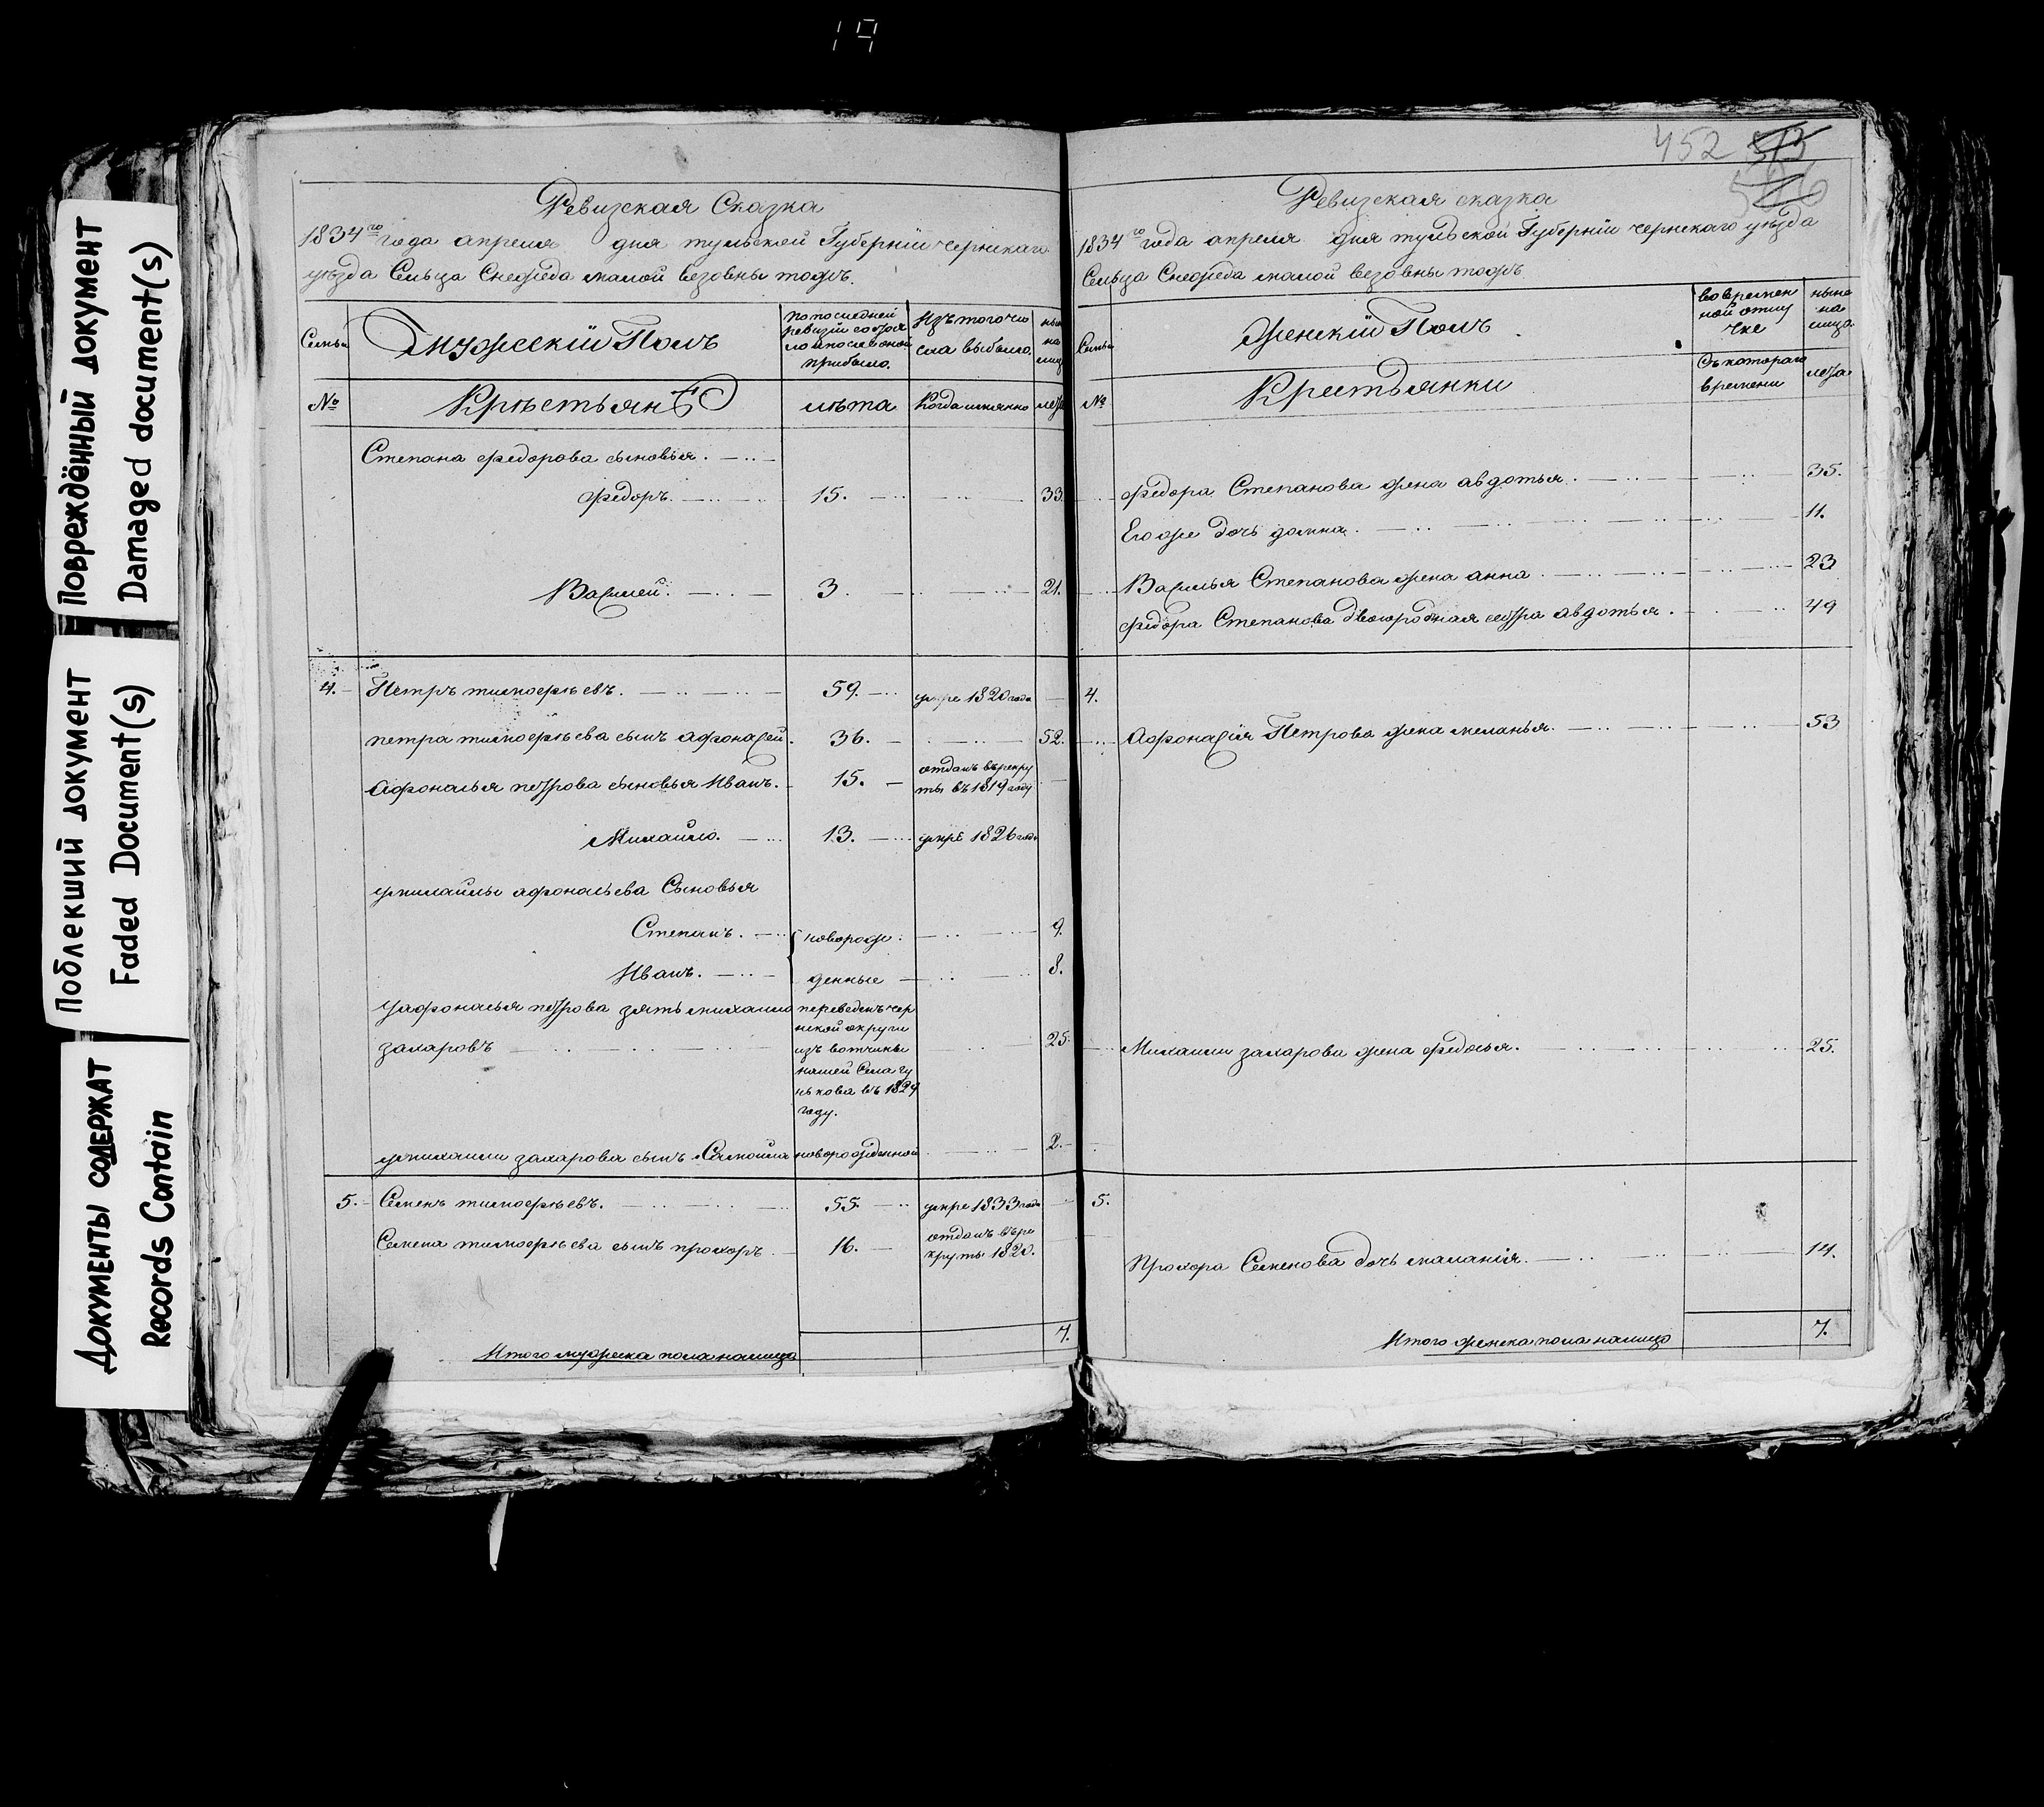 19
Повреждённый документ
Damaged document(s)
Поблекший документ
Faded Document(s)
Документы содержат
Records Contain
Ревизская Сказка
1834го года апреля дня тульской Губернiи чернскаго
уезда Сельца Снежеда малой везовны тожъ.
Семьи
Мужескiй Полъ
По последней ревизiи состояло и после оной прибыло.
Изъ того числа выбыло.
ныне на лицо
№
Крестьяне
лета
Когда имянно
лета
Степана федорова сыновья.
федоръ. 15. 33.
Василей. 3. 21.
4. Петръ тимофеевъ. 59. умре 1820 года
петра тимофеева сынъ афонасей. 36. 52.
Афонасья петрова сыновья Иванъ. 15. отданъ въ рекру
ты въ 1819 году
Михайло. 13. умре 1826 года
умихайлы афонасьева Сыновья
Степанъ. новорож 9.
Иванъ. денные 8.
уафонасья петрова зять михайло переведенъ чер
нской округи
захаровъ изъ вотчины 25.
нашей Села гу
нькова въ 1829
году.
умихайлы захарова сынъ Самойла новорожденной 2.
5. Семенъ тимофеевъ. 55. умре 1833 года
Семена тимофеева сынъ прохоръ. 16. отданъ въ ре
круты 1820.
Итого мужеска пола налицо 7.
452 513
526
Ревизская сказка
1834го года апреля дня тульской Губернiи чернскаго уезда
Сельца Снежеда малой везовны тожъ.
Семьи
Женскiй Полъ
во времен
ной отлу
чке
ныне
на
лицо
№
Крестьянки
Съ котораго
времени
лета
федора Степанова жена авдотья. 35.
Его же дочь домна. 11.
Василья Степанова жена анна. 23
федора Степанова двоюродная сестра авдотья. 49
4.
Афонасiя Петрова жена меланья. 53
Михайлы захарова жена федосья. 25.
5.
Прохора Семенова дочь маланiя. 14.
Итого женска пола налицо 7.